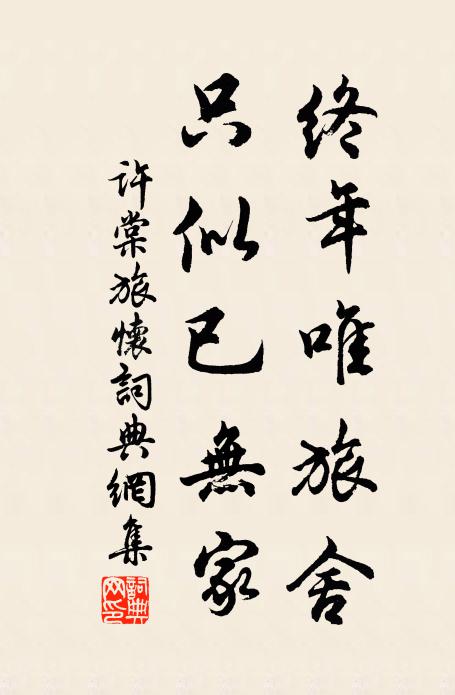 終年唯旅舍
只似已無家
許棠旅懷詞典網集
詞典網印